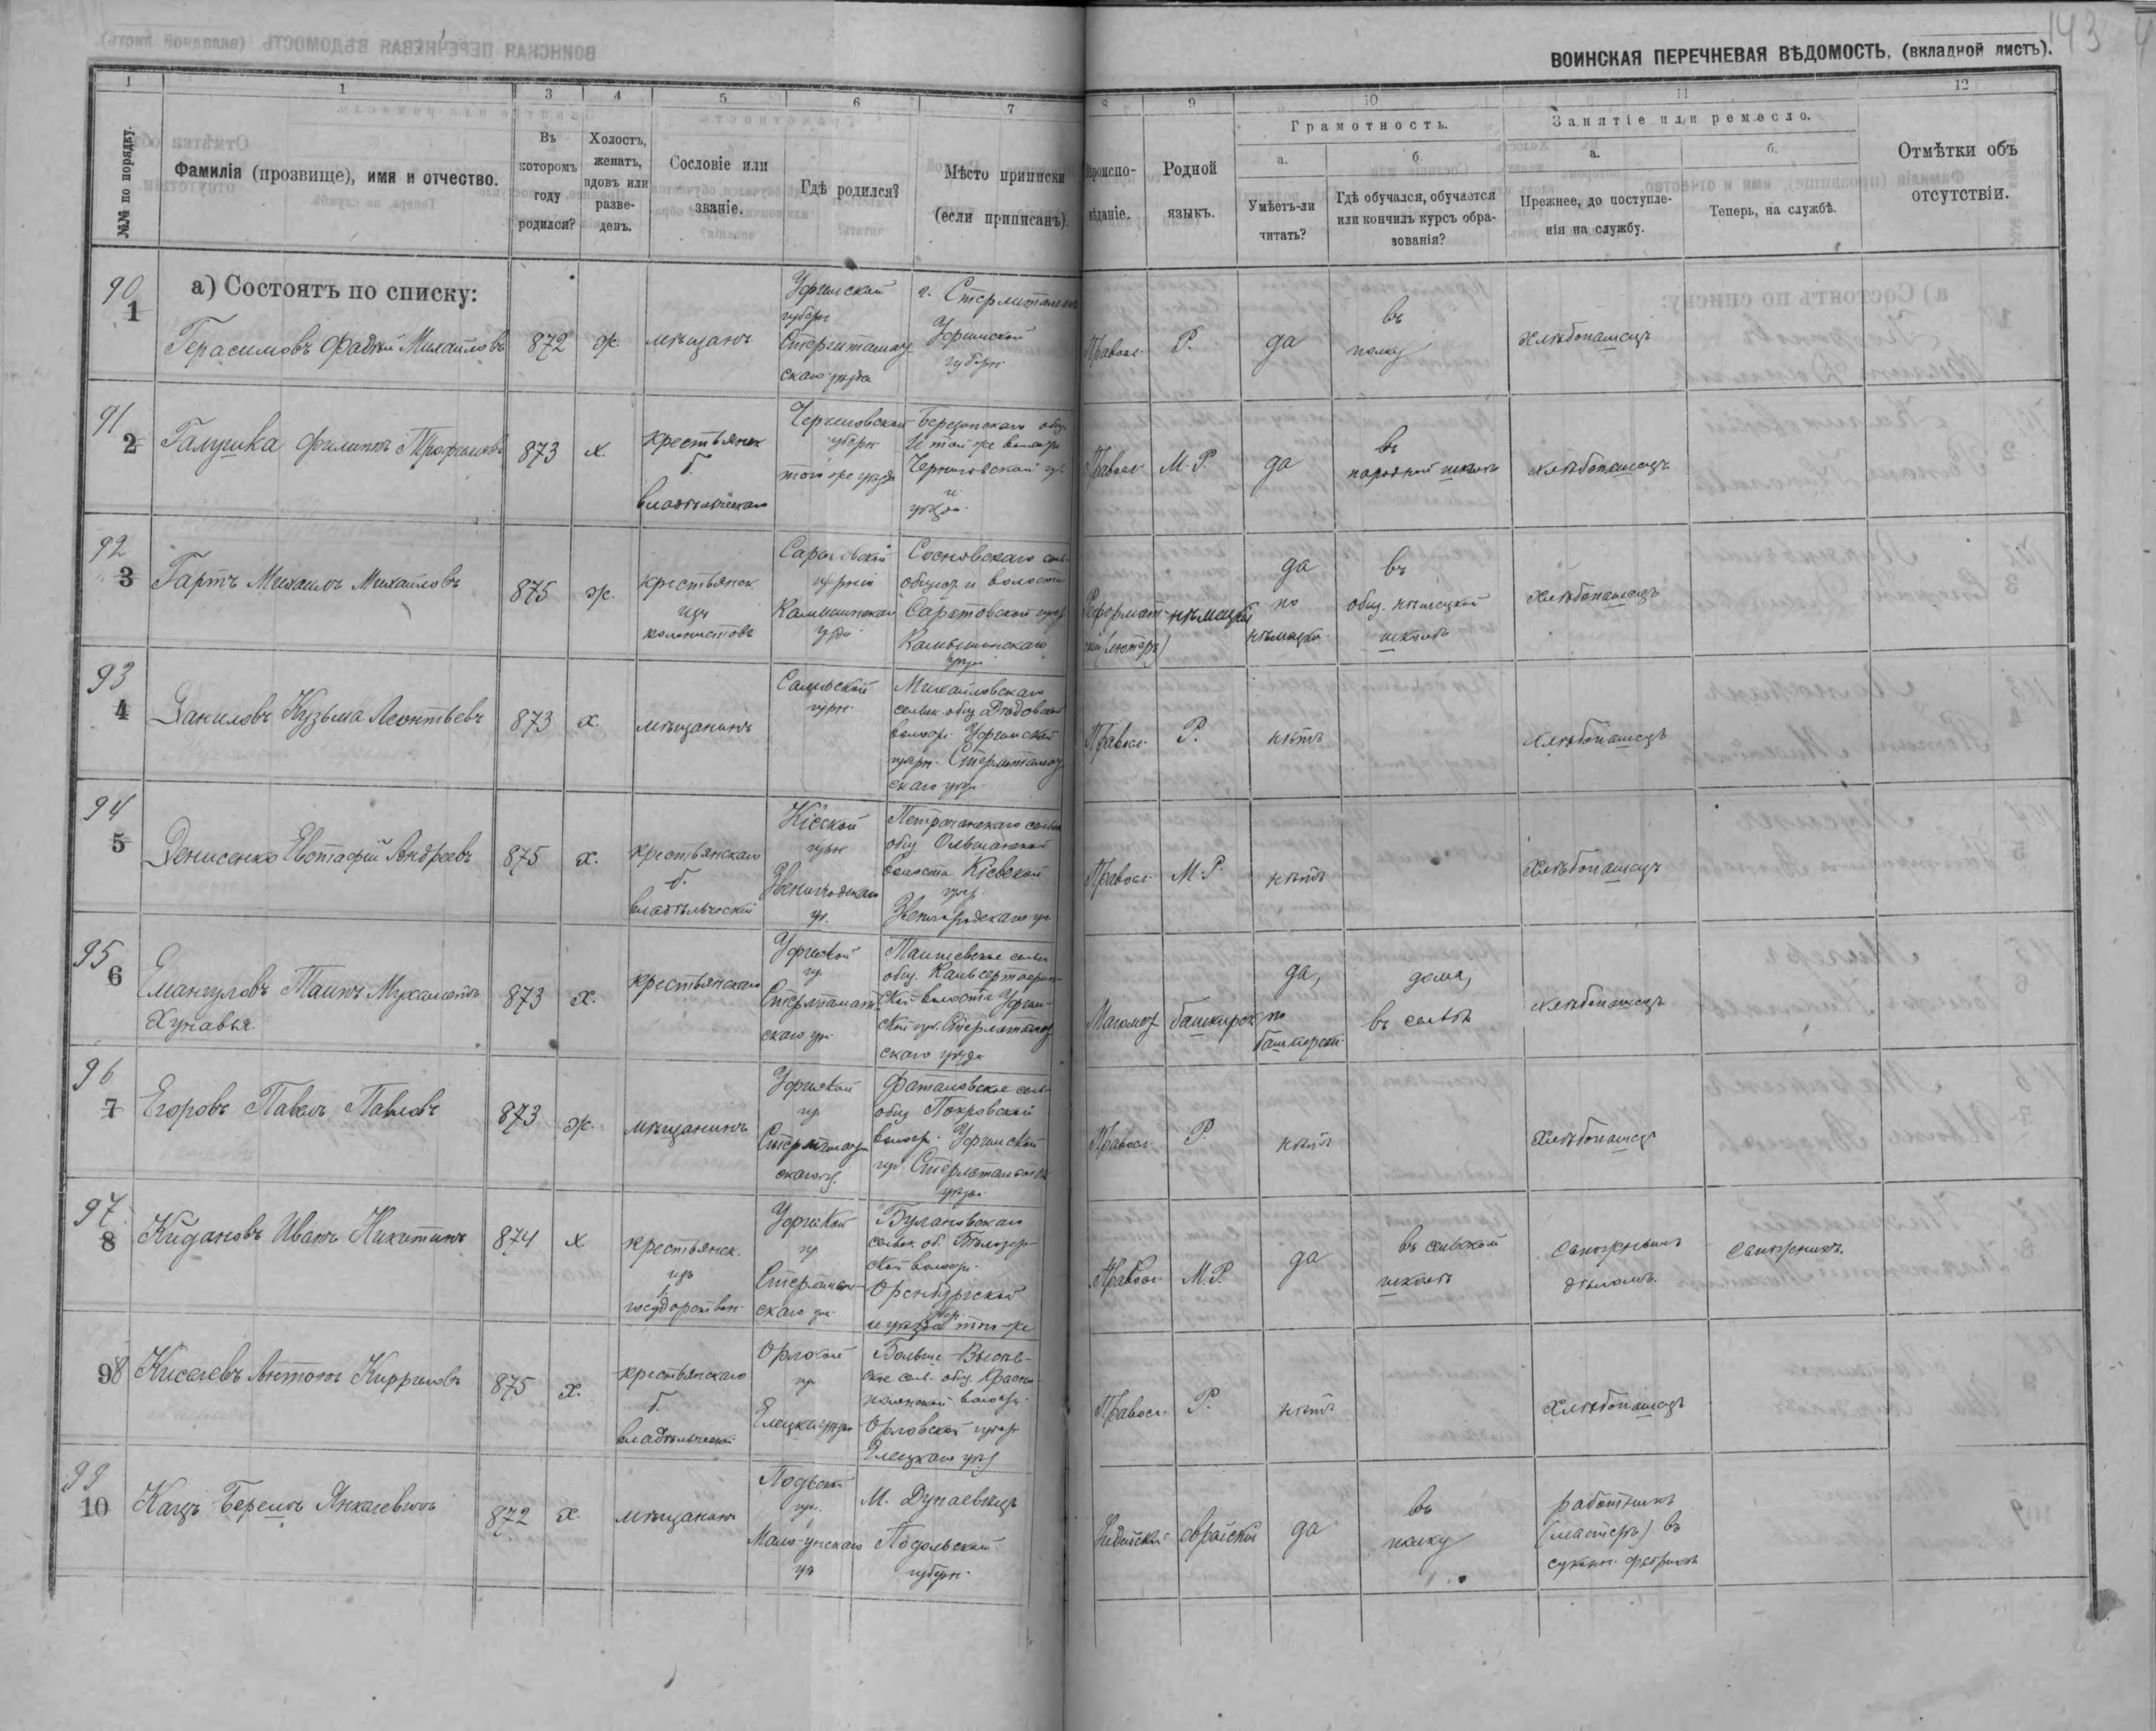 143
ВОИНСКАЯ ПЕРЕЧНЕВАЯ ВѢДОМОСТЬ, (вкладной листъ).
1 1 3 4 5 6 7 8 9 10 11 12
№№ по порядку.
Фамилія (прозвище), имя и отчество.
Въ
которомъ
году
родился?
Холостъ,
женатъ,
вдовъ или
разве-
денъ.
Сословіе или
званіе.
Гдѣ родился?
Мѣсто приписки
(если приписанъ).
Вѣроиспо-
вѣданіе.
Родной
языкъ.
Грамотность.
а.
Умѣетъ-ли
читать?
б
Гдѣ обучался, обучается
или кончилъ курсъ обра-
зованія?
Занятіе или ремесло.
а.
Прежнее, до поступле-
нія на службу.
б.
Теперь, на службѣ.
Отмѣтки объ
отсутствіи.
а) Состоятъ по списку:
90
1
Герасимовъ Фадѣй Михайловъ
872
ж.
мѣщанъ
Уфимской
губерн
Стерлитамак
скаго уѣзда
г. Стерлитамакъ
Уфимской
губерн.
Правосл.
Р.
да
въ
полку
хлѣбопашецъ
91
2
Галушка Филиппъ Трофимовъ
873
х.
крестьянск
б.
владѣльческаго
Черниговской
губерн
того же уѣзда
и той же волости
Черниговской гу.
и
уѣзда.
Правосл.
М. Р.
да
въ
народной школѣ
хлѣбопашецъ
92
3
Гартъ Михаилъ Михайловъ
875
ж.
крестьянск.
изъ
колонистовъ
Камышинскаго
Сосновскаго сел.
общест. и волости
Саратовской губер
Камышинскаго
Реформат-
ской (лютер.)
нѣмецкій
да
по
нѣмецки
въ
общ. нѣмецкой
школѣ
хлѣбопашецъ
93
4
Даниловъ Кузьма Леонтьевъ
873
х.
мѣщанинъ
Михайловскаго
сельск. общ. Дѣдовской
волост. Уфимской
губерн. Стерлитамак
скаго уѣз.
Правосл.
Р.
нѣтъ
хлѣбопашецъ
94
5
Денисенко Евстафій Андреевъ
875
х.
крестьянскаго
б.
владѣльческій
Кіевской
губерн
Звенигородскаго
у.
общ. Ольшанской
волости Кіевской
губер.
Звенигородскаго уѣ
Правосл.
М. Р.
нѣтъ
хлѣбопашецъ
95
6
873
х.
крестьянскаго
Уфимской
гу.
Стерлитамак
скаго уѣ.
волости Уфим-
ской гу. Стерлитамак
скаго уѣзда
Магомет
башкирск
да,
по
башкирски.
дома,
въ
хлѣбопашецъ
96
7
Егоровъ Павелъ Павловъ
873
ж.
мѣщанинъ
Уфимской
гу
Стерлитамак
скаго у.
общ. Покровской
волост. Уфимской
гу. Стерлитамакск
уѣзда
Правосл.
Р.
нѣтъ
хлѣбопашец
97
8
Кидановъ Иванъ Никитинъ
874
х
крестьянск.
изъ
государствен.
Уфимской
гу
Стерлитамак
скаго уѣ.
Булановскаго
сельск. об. Бѣлозер-
ской волост.
Оренбургской
губер.
и уѣзда того-же
Правосл.
М. Р.
да
въ сельской
школѣ
сапожнымъ
дѣломъ.
сапожникъ.
98
Киселевъ Антонъ Кирриловъ
875
х.
крестьянскаго
б.
владѣльческій
Орловской
гу
Елецкаго уѣзда
волости.
Орловской губер
Елецкаго уѣз.
Правосл.
Р.
нѣтъ
хлѣбопашецъ
99
10
Кацъ Берель Янкелевичъ
872
х.
мѣщанинъ
Подольск
гу.
М. Дунаевецъ
Подольской
губерн.
Іудейскій
еврейскій
да
въ
полку
работникъ
(мастеръ) въ
сукон. фабрикѣ